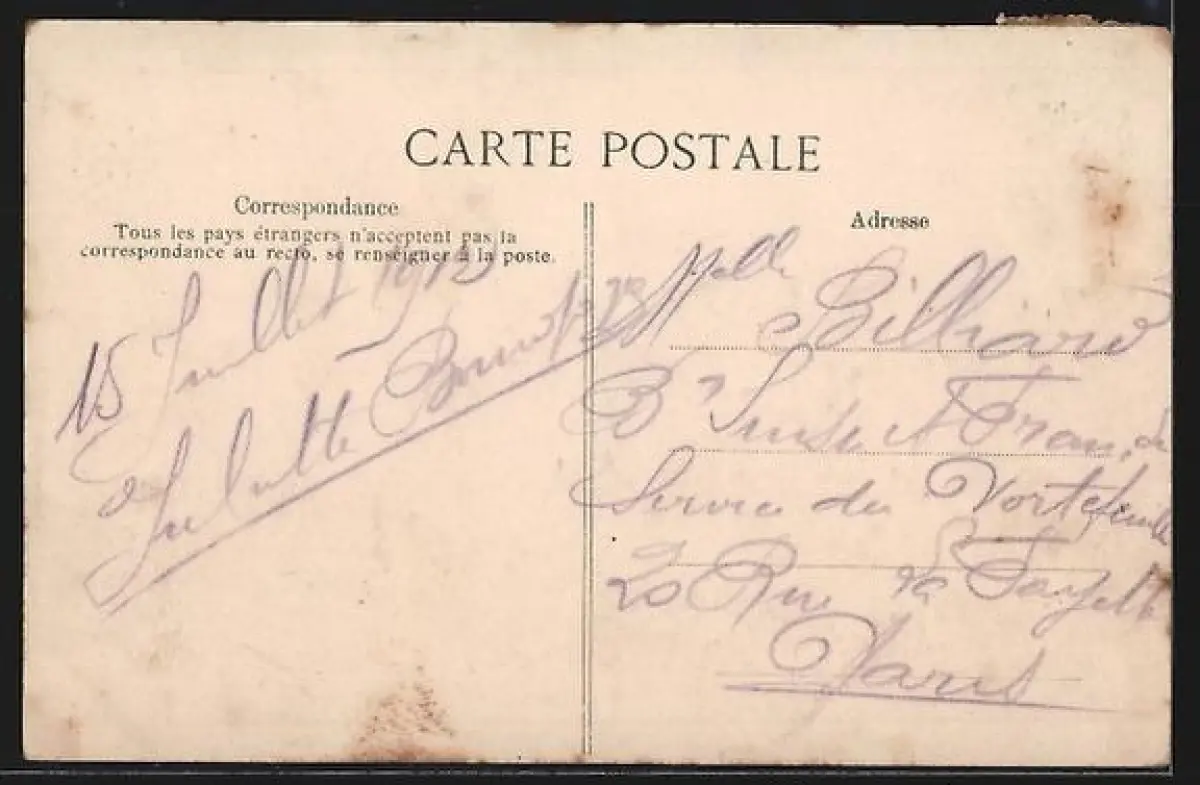 CARTE POSTALE
Correspondance
Tous les pays étrangers n'acceptent pas la
correspondance au recto, se renseigner à la poste.
15 Juillet 191
Juliette
Adresse
Melle
Billiard
Bque Suisse et Fran.
Service du Portefeuille
20 Rue La Fayette
Paris